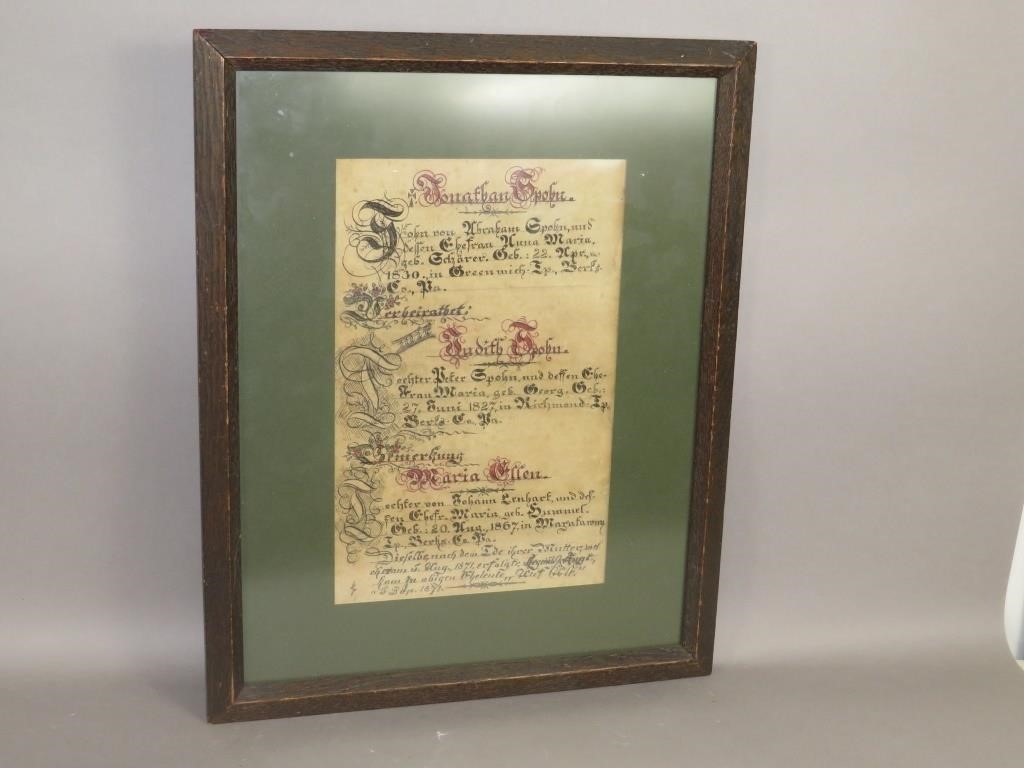 Jonathan Spohn.
Sohn von Abraham Spohn, und
dessen Ehefrau Anna Maria,
geb. Schärer. Geb.: 22. Apr.,
1830, in Greenwich-Tp., Berks-
Co., Pa.
Verheirathet:
Judith Spohn.
Tochter Peter Spohn, und dessen Ehe-
frau Maria, geb. Georg. Geb.:
27. Juni 1827, in Richmond-Tp.,
Berks-Co., Pa.
Bemerkung
Maria Ellen.
Tochter von Johann Lenhart, und des-
sen Ehefr. Maria geb. Hummel.
Geb.: 20. Aug., 1867, in Maxatawny
Tp., Berks-Co. Pa.
Dieselbe, nach dem Tode ihrer Mutter,
Aug., 1871, erfolgte,
kam zu obigen Eheleute,
1871.